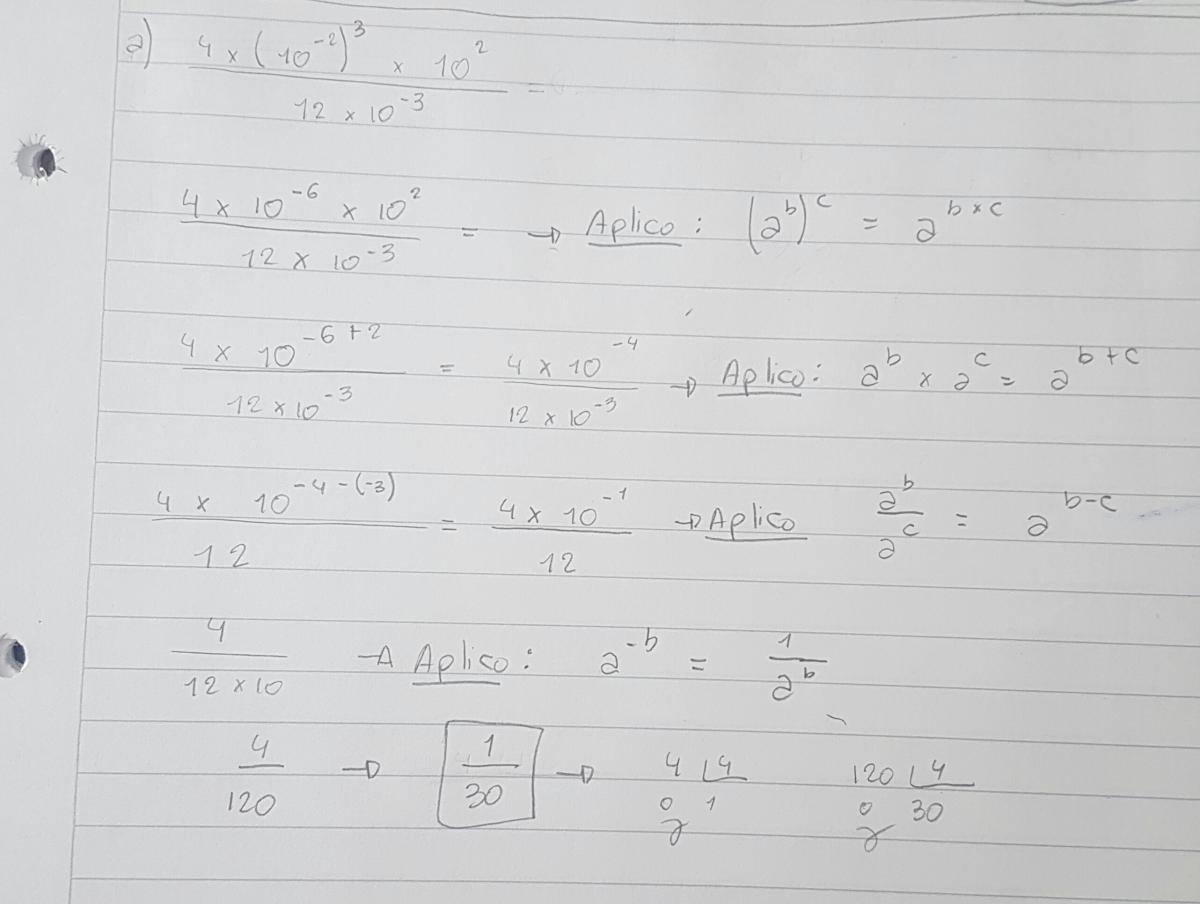 a) 4 × (10⁻²)³ × 10² / 12 × 10⁻³ =
4 × 10⁻⁶ × 10² / 12 × 10⁻³ = → Aplico : (a^b)^c = a^(b×c)
4 × 10^(-6+2) / 12 × 10⁻³ = 4 × 10⁻⁴ / 12 × 10⁻³ → Aplico : a^b × a^c = a^(b+c)
4 × 10^(-4-(-3)) / 12 = 4 × 10⁻¹ / 12 → Aplico a^b / a^c = a^(b-c)
4 / 12 × 10 → Aplico : a^(-b) = 1 / a^b
4 / 120 → 1 / 30 → 4 |4 120 |4
0 1 0 30